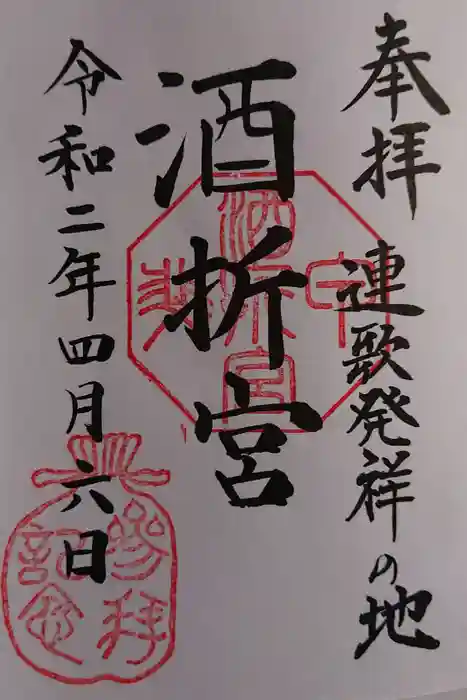 奉拝 連歌発祥の地
酒折宮
令和二年四月六日
酒折宮
参拝
記念